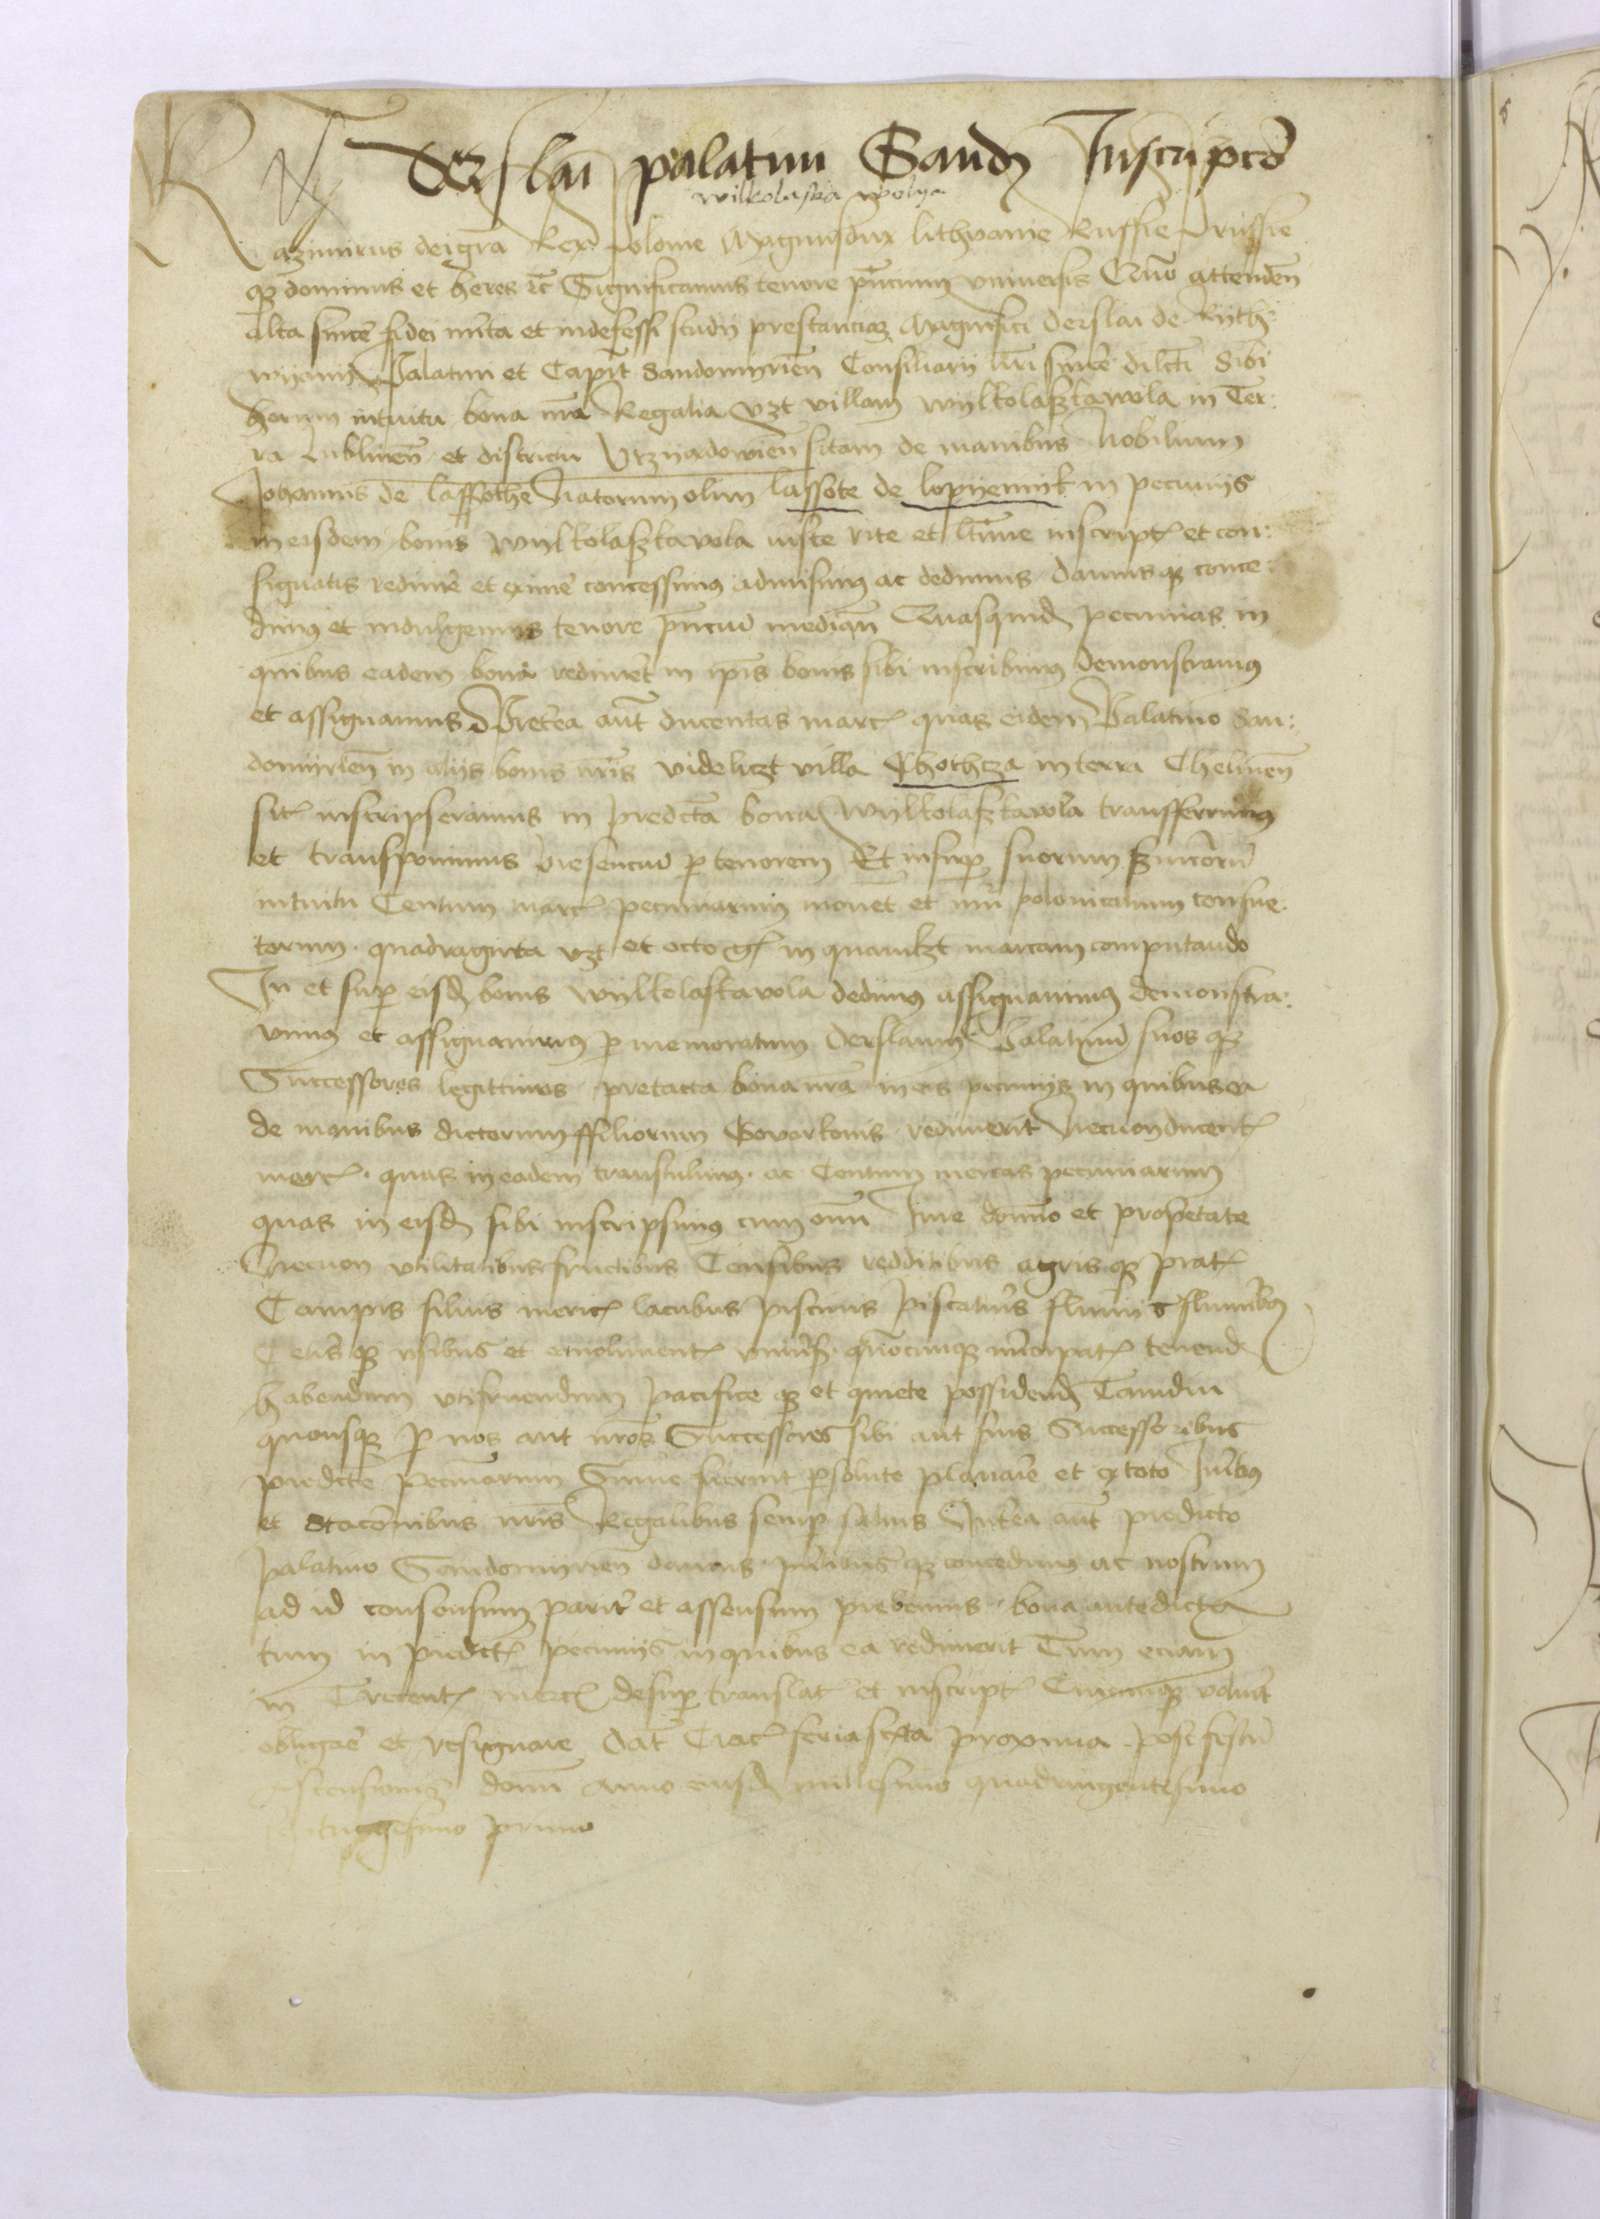 Derslai palatini Sand Inscripcio
Wilkolaska Wolya
Kazimirus dei gra Rex Polonie Magnusdux lithvanie Russie Prussie
q dominus et heres etc Significamus tenore pntium universis Quo attenden
alta since fidei mita et indefessi studii prestanciaq Magnifici Derslai de Rith
wyani Palatini et Capit Sandomirien Consiliarii nri since dilcti Sibi
horum intuitu bona nra Regalia vzt villam Wylkolaszkawola in Ter:
ra lublinen et districtu Vrzyadowien sitam de manibus Nobilium
Johannis de lassothe Natorum olim lassote de lopyennik in pecuniis
in eisdem bonis Wylkolaszkawola iuste rite et ltime inscript et con:
signatis redime et exime concessimus admisimus ac dedimus damus q conce:
dimus et indulgemus tenore pntium median Quasquid pecunias in
quibus eadem bona redimet in ipis bonis sibi inscribimus demonstramus
et assignamus Pretea aut ducentas marc quas eidem Palatino San:
domirien in aliis bonis nris videliczt villa Rhothcza in terra Chelmen
sit inscripseramus in predcta bona Wylkolaszkawola transferrimus
et transponimus presencium p tenorem Et insup suorum suicioru
intuitu Centum marc pecuniarum monet et nui polonicalium consue:
torum quadraginta vzt et octo gs in quamlzt marcam computando
In et sup eisd bonis Wylkolaskawola dedimus assignavimus demonstra:
vimus et assignavimus p memoratum Derslaum Palatinu suos q
Successores legittimos pretacta bona nra in eis pecuniis in quibus ea
de manibus dictorum ffiliorum Goworkonis redimerit Necnon ducent
marc quas in eadem transtulimus ac Centum marcas pecuniarum
quas in eisd sibi inscripsimus cum omi Iure domio et proprietate
Necnon utilitatibus fructibus Censibus redditibus agris q prat
Campis silvis meric lacubus piscinis piscaturis fluviis fluminibus
Ceteris q usibus et emolument univsis quocunq nuncupat tenend
habendum utifruendum pacifice q et quiete possidend Tamdiu
quousq p nos aut nros Successores sibi aut suis Successoribus
predicte pecuniarum Sume fuerint psolute plenarie et ex toto Iuribus
et stacoibus nris Regalibus semp salvis Intea aut predicto
palatino Sandomirien damus q concedimus ac nostrum
ad id consensum parit et assensum prebemus bona antedicta
tum in predict pecuniis in quibus ea redimerit Tum eciam
in Trecent marc desup translat et inscript Cuicunq voluit
obligare et resignare Dat Crac feria sexta proxima post festu
Ascensionis domi Anno eiusd millesimo quadringentesimo
septuagesimo primo